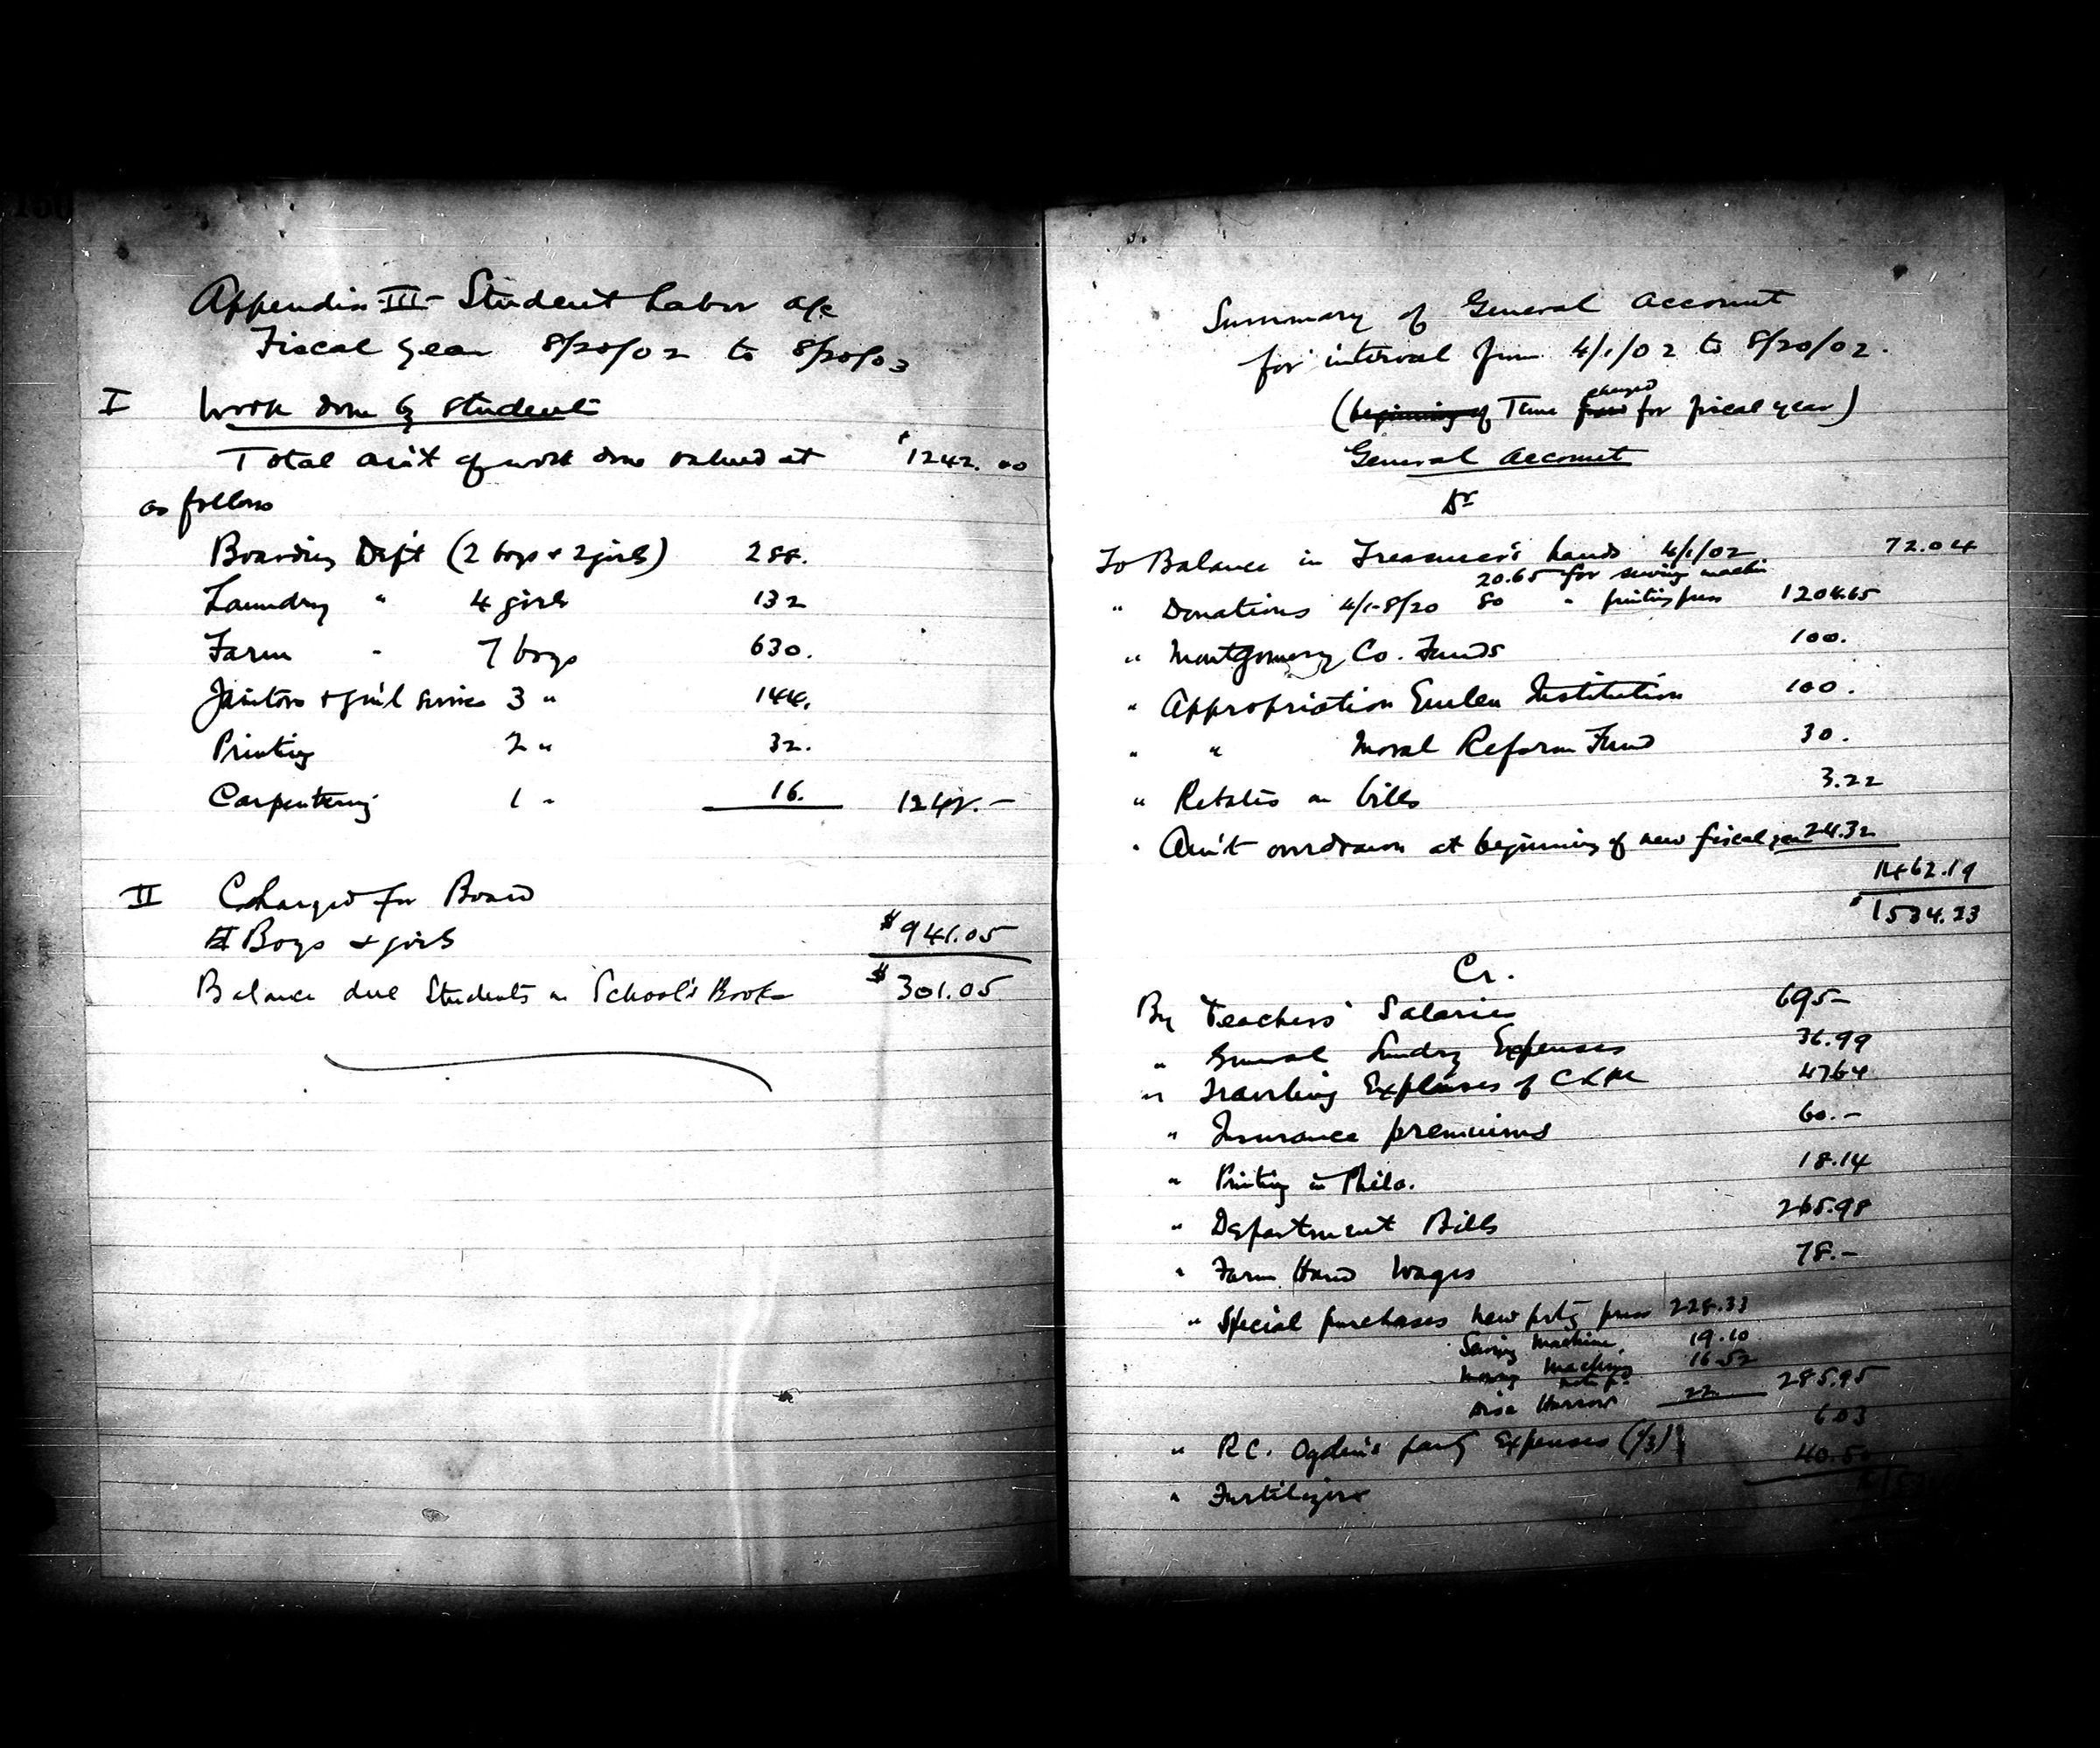 150
Appendix III - Student Labor a/c
Fiscal year 8/20/02 to 8/20/03
I Work done by student
Total am't of work done valued at $1242.00
as follows
Boarding Dep't (2 boys & 2 girls) 288.
Laundry " 4 girls 132
Farm " 7 boys 630.
Janitors & gen'l service 3 " 144.
Printing 2 " 32.
Carpentering 1 " 16. 1242.-
II Charged for Board
Boys & girls $941.05
Balance due Students on School's Books $301.05
Summary of General Account
for interval from 4/1/02 to 8/20/02.
changed
(beginning of Time for fiscal year)
General Account
Dr
To Balance in Treasurer's hands 4/1/02 72.04
20.65 for sewing machin
" Donations 4/1-8/20 80 " printing press 1204.65
" Montgomery Co. Funds 100.
" Appropriation Emlen Institution 100.
" " Moral Reform Fund 30.
" Rebates on bills 3.22
" Am't overdrawn at beginning of new fiscal year 24.32
1462.19
$1534.23
Cr.
By Teachers' Salaries 695-
" General Sundry Expenses 36.99
" Traveling Expenses of 47.64
" Insurance premiums 60.-
" Printing in Phila. 18.14
" Department Bills 265.98
" Farm Hand Wages 78.-
" Special purchases new prtg press 228.33
Sewing Machine, 19.10
Mowing Machine 16.52
Disc Harrow 22. 285.95
" R.C. Ogden's party Expenses (1/3) 6.03
" Fertilizers 40.50